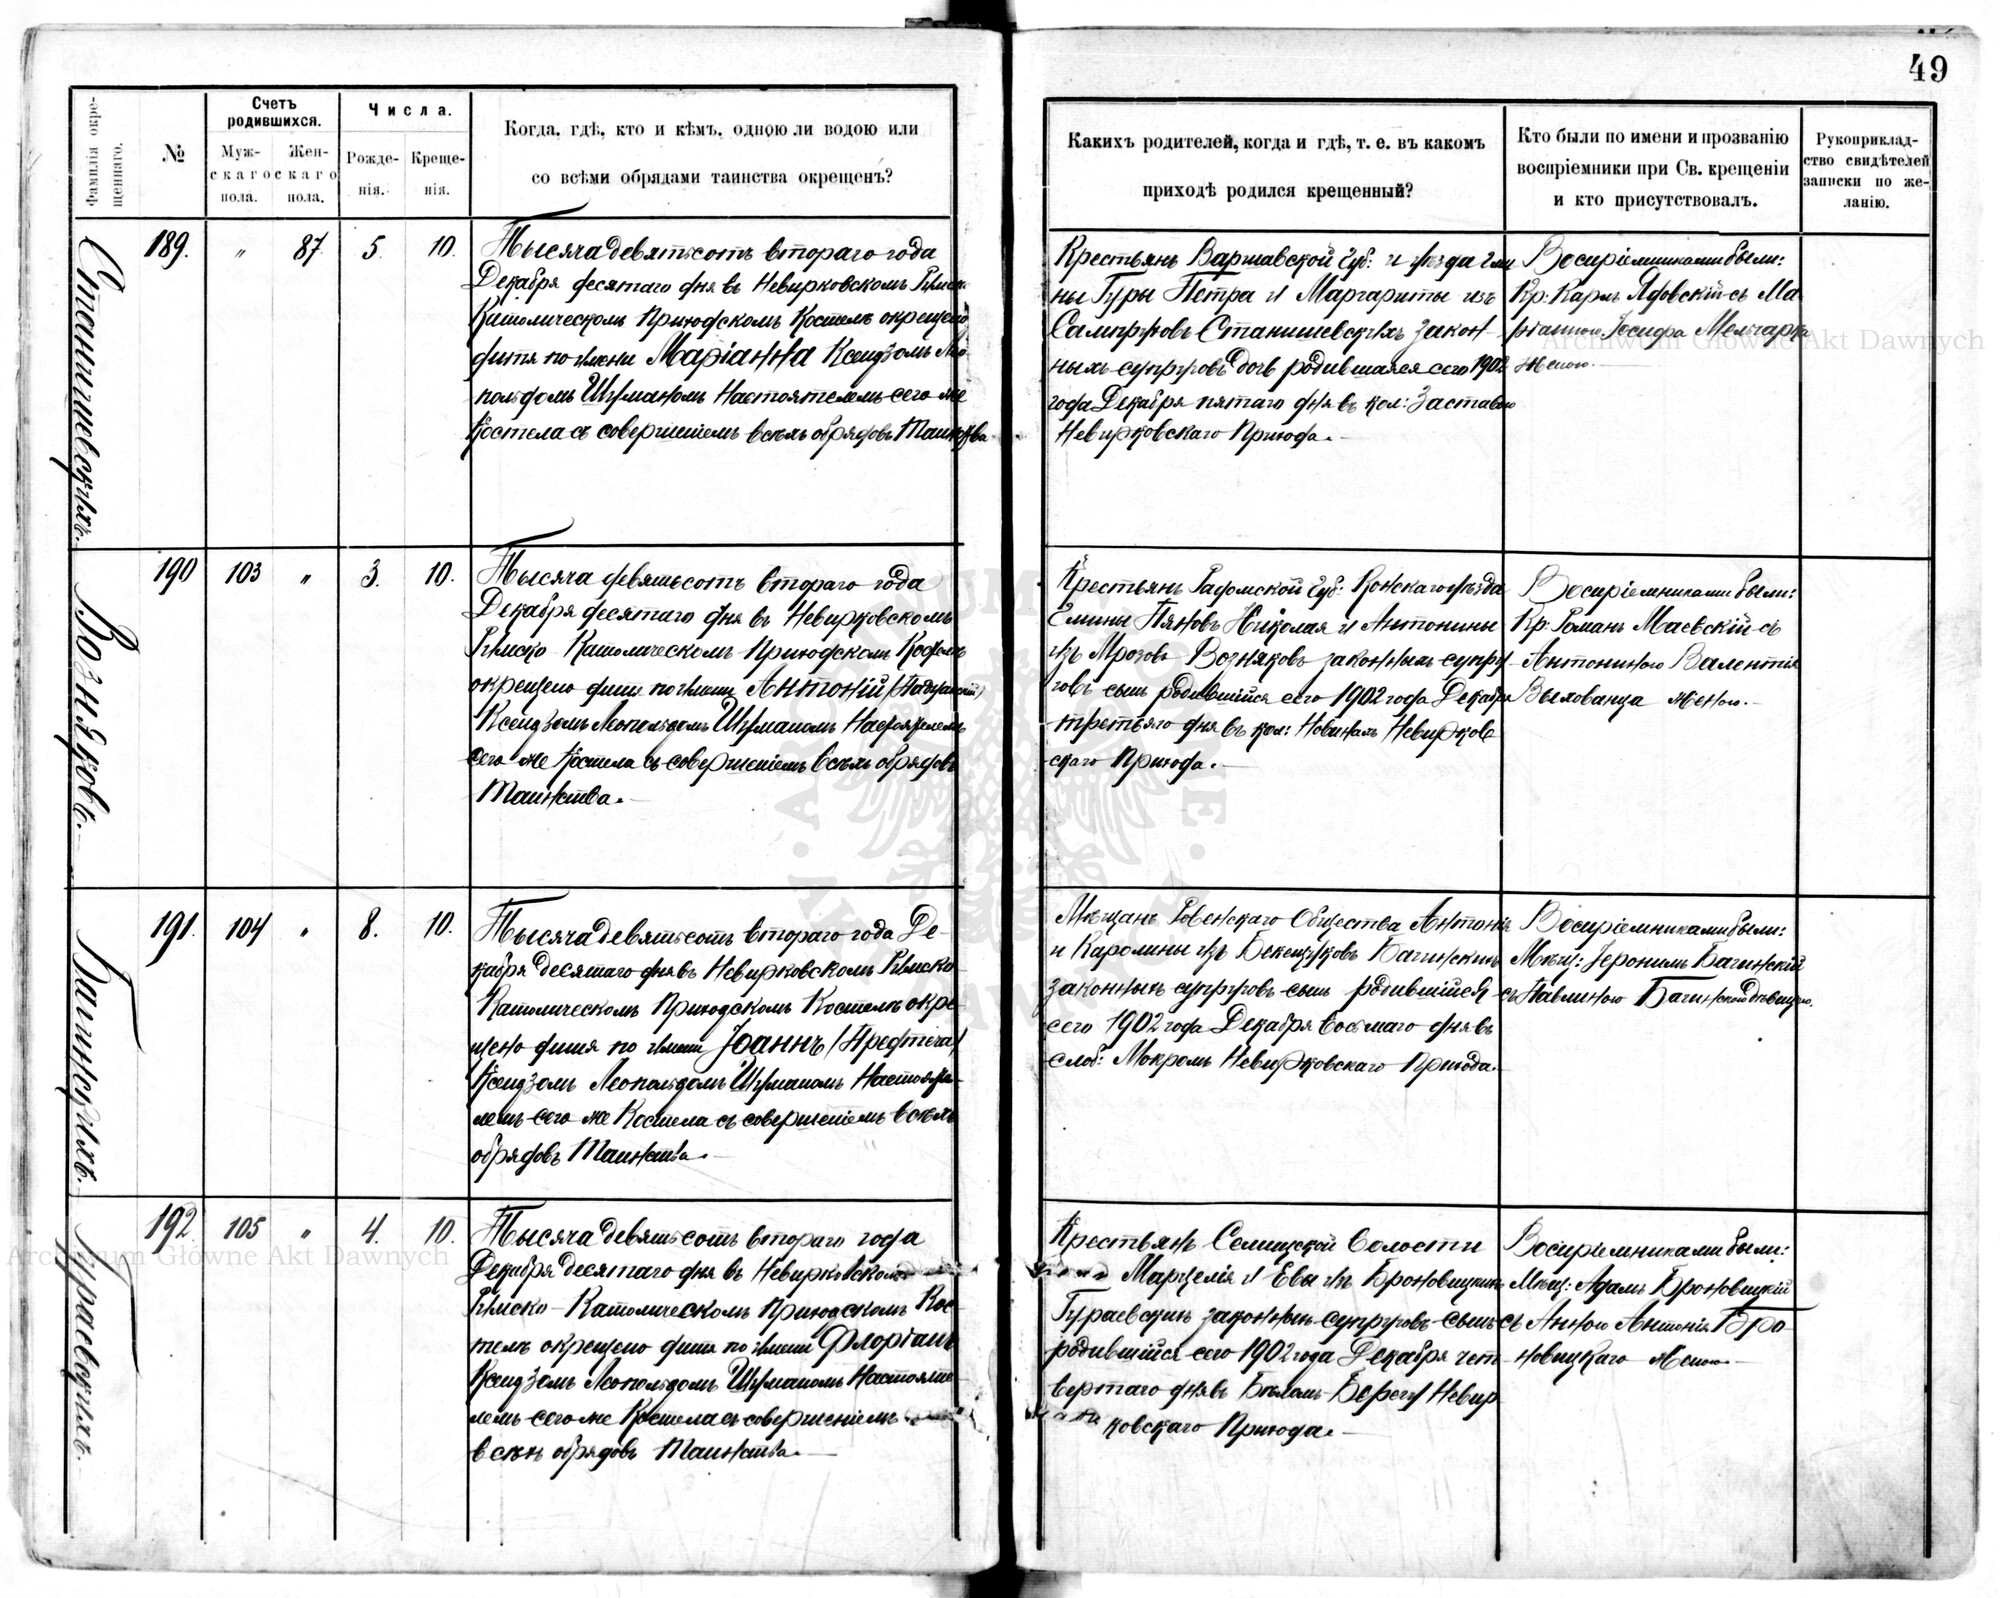 49
Фамилія окре-
щеннаго.
№
Счетъ
родившихся.
Муж-
скаго
пола.
Жен-
скаго
пола.
Числа.
Рожде-
нія.
Креще-
нія.
Когда, гдѣ, кто и кѣмъ, одною ли водою или
со всѣми обрядами таинства окрещенъ?
Какихъ родителей, когда и гдѣ, т. е. въ какомъ
приходѣ родился крещенный?
Кто были по имени и прозванію
воспріемники при Св. крещеніи
и кто присутствовалъ.
Рукоприклад-
ство свидѣтелей
записки по же-
ланію.
Станишевскихъ.
189. " 87 5. 10.
Тысяча девятьсотъ втораго года
Декабря десятаго дня въ Невирковскомъ Римско
Католическомъ Приходскомъ Костелѣ окрещено
дитя по имени Маріанна Ксендзомъ Лео-
польдомъ Шуманомъ Настоятелемъ сего же
Костела съ совершеніемъ всѣхъ обрядовъ Таинства
Крестьянъ Варшавской Губ: и уѣзда Гми
ны Гуры Петра и Маргариты изъ
Станишевскихъ закон-
ныхъ супруговъ дочь родившаяся сего 1902
года Декабря пятаго дня въ кол: Заставью
Невирковскаго Прихода.—
Воспріемниками были:
Кр: Карлъ Ядовскій съ Ма
ріанною Іосифа Мельчарка
женою.—
Возняковъ.—
190 103 " 3. 10.
Тысяча девятьсотъ втораго года
Декабря десятаго дня въ Невирковскомъ
Римско Католическомъ Приходскомъ Костелѣ
окрещено дитя по имени Антоній (Падуанскій)
Ксендзомъ Леопольдомъ Шуманомъ Настоятелемъ
сего же Костела съ совершеніемъ всѣхъ обрядовъ
Таинства.—
Крестьянъ Радомской Губ: Конскаго уѣзда
Гмины Пяновъ Николая и Антонины
изъ Мрозовъ Возняковъ законныхъ супру
говъ сынъ родившійся сего 1902 года Декабря
третьяго дня въ кол: Новинахъ Невирков
скаго Прихода.—
Воспріемниками были:
Кр: Романъ Маевскій съ
Антониною Валентія
Выхованца женою.—
Багинскихъ.
191. 104 " 8. 10.
Тысяча девятьсотъ втораго года Де-
кабря десятаго дня въ Невирковскомъ Римско
Католическомъ Приходскомъ Костелѣ окре-
щено дитя по имени Іоаннъ (Предтеча)
Ксендзомъ Леопольдомъ Шуманомъ Настояте-
лемъ сего же Костела съ совершеніемъ всѣхъ
обрядовъ Таинства.—
Мѣщанъ Ровенскаго Общества Антонія
и Каролины изъ Багинскихъ
законныхъ супруговъ сынъ родившійся
сего 1902 года Декабря восьмаго дня въ
слоб: Мокромъ Невирковскаго Прихода.—
Воспріемниками были:
Мѣщ: Іеронимъ Багинскій
съ Павлиною Багинской дѣвицею.
Гураевскихъ.
192 105 " 4. 10.
Тысяча девятьсотъ втораго года
Декабря десятаго дня въ Невирковскомъ
Римско-Католическомъ Приходскомъ Кос
телѣ окрещено дитя по имени Флоріанъ
Ксендзомъ Леопольдомъ Шуманомъ Настояте
лемъ сего же Костела съ совершеніемъ
всѣхъ обрядовъ Таинства.—
Крестьянъ Селищской Волости
Марцелія и Евы изъ Броновицкихъ
Гураевскихъ законныхъ супруговъ сынъ
родившійся сего 1902 года Декабря чет
вертаго дня въ Бѣломъ-Берегу Невир
ковскаго Прихода.—
Воспріемниками были:
Мѣщ: Адамъ Броновицкій
съ Анною Антонія Бро-
новицкаго женою.—
Archiwum Główne Akt Dawnych
Archiwum Główne Akt Dawnych